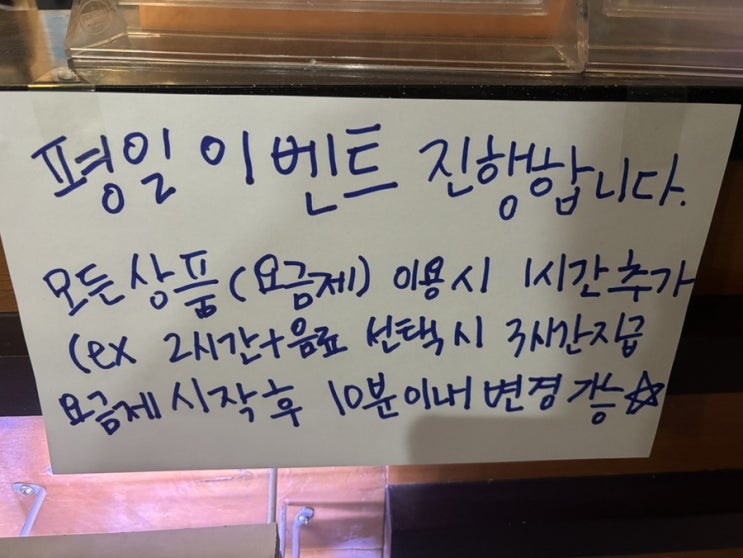 평일 이벤트 진행합니다.
모든상품(요금제) 이용시 1시간추가
(ex 2시간+음료 선택시 3시간지급
요금제시작후 10분이내변경가능☆